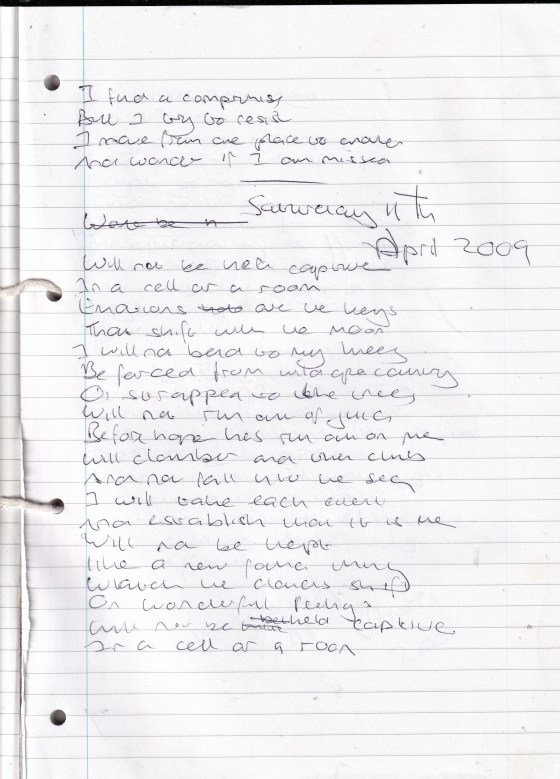 I find a compromise
But I try to resist
I move from one place to another
And wonder if I am missed
Saturday 11th
April 2009
Will not be held captive
In a cell or a room
Emotions are the keys
That shift with the moon
I will not bend to my knees
Be forced from
Or strapped to the trees
Will not run out of juice
Before hope has run out on me
Will clamber and then climb
And not fall into the sea
I will take each event
And establish what it is me
Will not be kept
Like a new found
Watch the clouds shift
On wonderful feelings
Will not be held captive
In a cell or a room